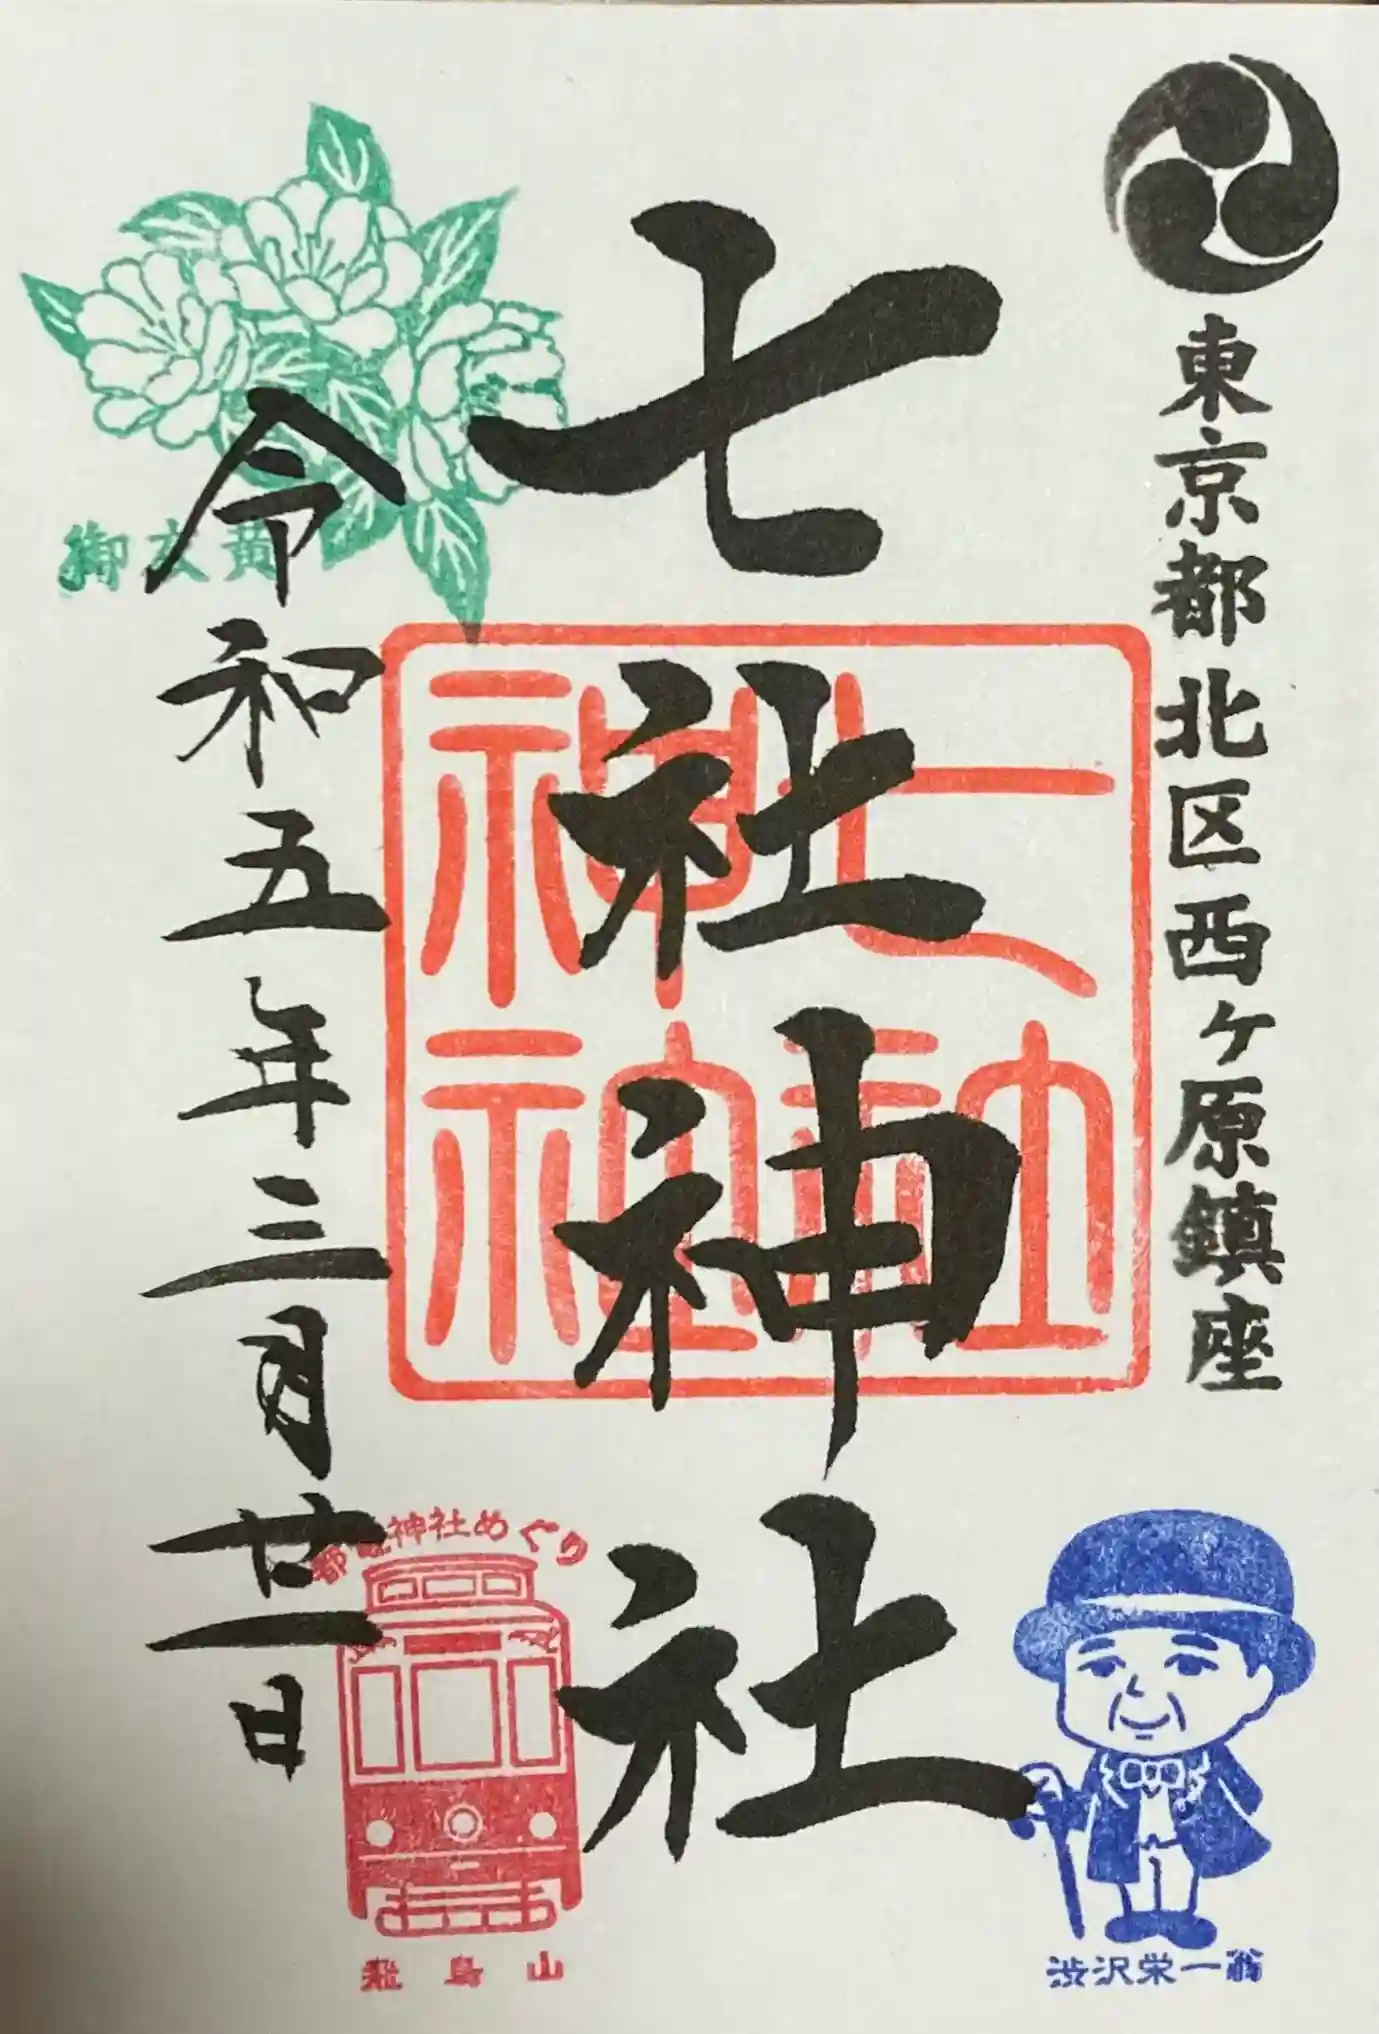 東京都北区西ヶ原鎮座
七社神社
七社
神社
御衣黄
令和五年三月廿一日
都電神社めぐり
飛鳥山
渋沢栄一翁